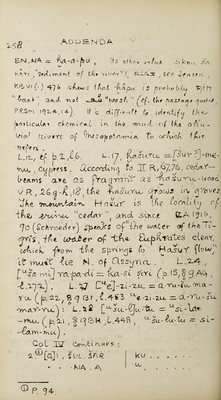 258 ADDENDA
EN.NA = ḫa-a-pu, its other value siknu ša
nâri, "sediment of the river" (
KBVI(i) 476 shews that ḫâpu is probably
"bank" and not "wash" (cf. the passage quoted
PRSM 1924, 14). It is difficult to identify the
particular chemical in the mud of the allu-
vial rivers of Mesopotamia to which this
refers.
L.12, cf. p.2, l.6. L.17, ḫašuru = [šur?]-me-
nu, cypress. According to II R, 67,76, cedar-
beams are as fragrant as ḫašuru-wood
VR, 26 g-h, 18, the ḫašuru grows in groves
The mountain Ḫašur is the locality of
the erinu "cedar", and since ZA 1916,
90 (Schroeder) speaks of the water of the Ti-
gris, the water of the Euphrates clear,
which from the springs to Ḫašur flow,"
it must lie N. of Assyria. L.24,
[ušam] rapadi = ka-si ṣiri (p.15, 89 AG,
l.272). L.27 [ᵘe]-zi-zu = a-ru-šu ma-
ru (p.22, 89 BI, l.483 ᵘe-zi-zu = a-ru-šu
mar-ru): L.28 [ᵘšu-l]u-tu = ᵘsi-la-
-mu (p.21, 89 BH, l.448, ᵘšu-lu-tu = si-
lam-mu).
Col IV continues:
KU
NA.A U
① P. 94.